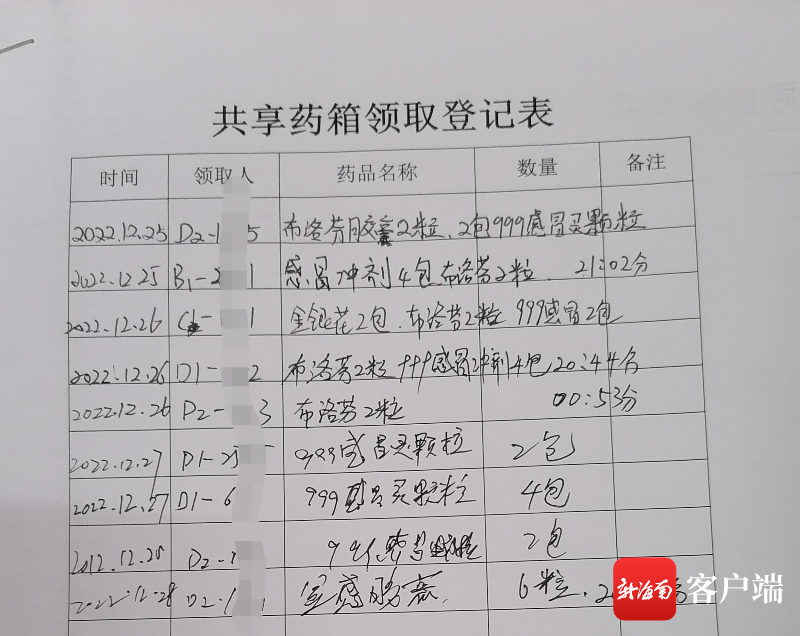 共享药箱领取登记表
时间 领取人 药品名称 数量 备注
2022.12.25 D2-1 5 布洛芬胶囊2粒、2包999感冒灵颗粒
2022.12.25 B1-2 1 感冒冲剂4包布洛芬2粒. 21:02分
2022.12.26 1 金银花2包、布洛芬2粒 999感冒2包
2022.12.26 D1- 2 布洛芬2粒 999感冒冲剂4包 20:44分
2022.12.26 D2- 3 布洛芬2粒 00:53分
2022.12.27 D1-25 999感冒灵颗粒 2包
2022.12.27 D1-6 999感冒灵颗粒 4包
12.28 D2- 2包
2022.12.28 D2-1 6粒.
新海南 客户端